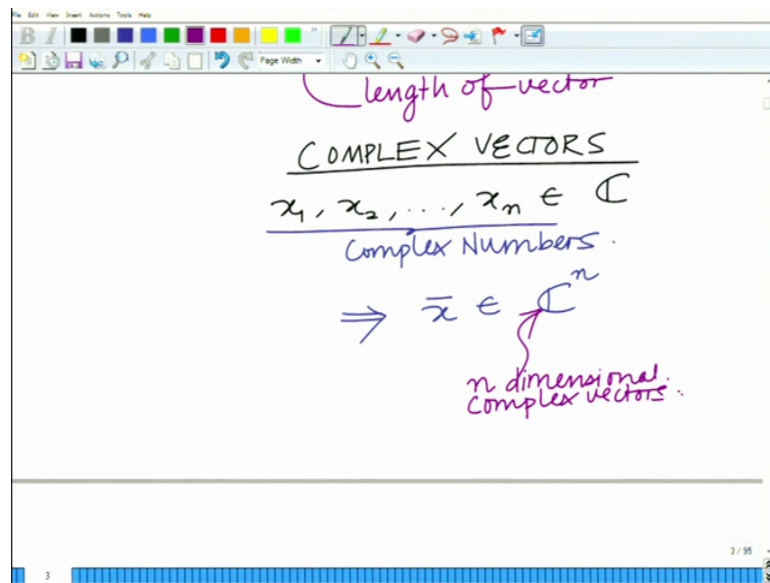 File Edit View Insert Actions Tools Help
B I
Page Width
length of vector
COMPLEX VECTORS
x₁, x₂, ..., xₙ ∈ ℂ
Complex Numbers.
⇒ x̄ ∈ ℂⁿ
n dimensional
complex vectors.
3 / 95
3